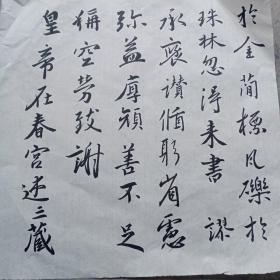 於金簡標風礫於
珠林忽得来書謬
承褒讚脩躬省慮
弥益厚顔善不足
稱空勞致謝
皇帝在春宮述三藏